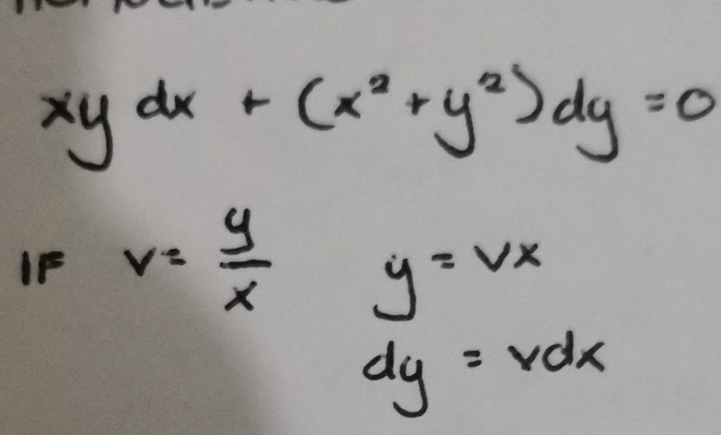 xy dx + (x² + y²) dy = 0
IF v = y/x y = vx
dy = vdx